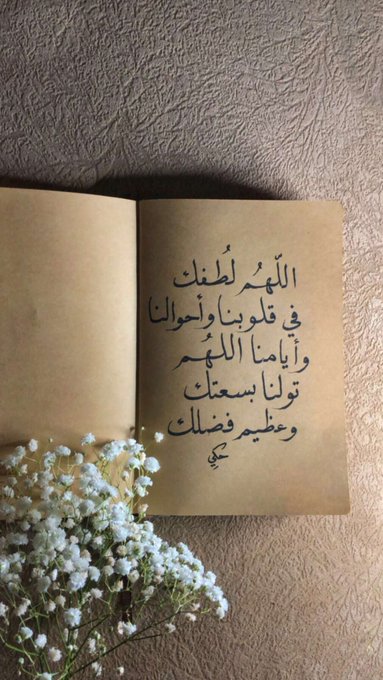 اللّهُم لُطفك
في قلوبنا وأحوالنا
وأيامنا اللهُم
تولنا بسعتك
وعظيم فضلك